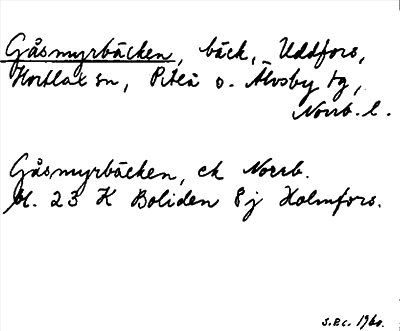 Gåsmyrbäcken, bäck, Uddfors,
Hortlax sn, Piteå o. Älvsby tg,
Norrb. l.
Gåsmyrbäcken, ek Norrb.
bl. 23 K Boliden 8j Holmfors.
S.P.C. 1960.